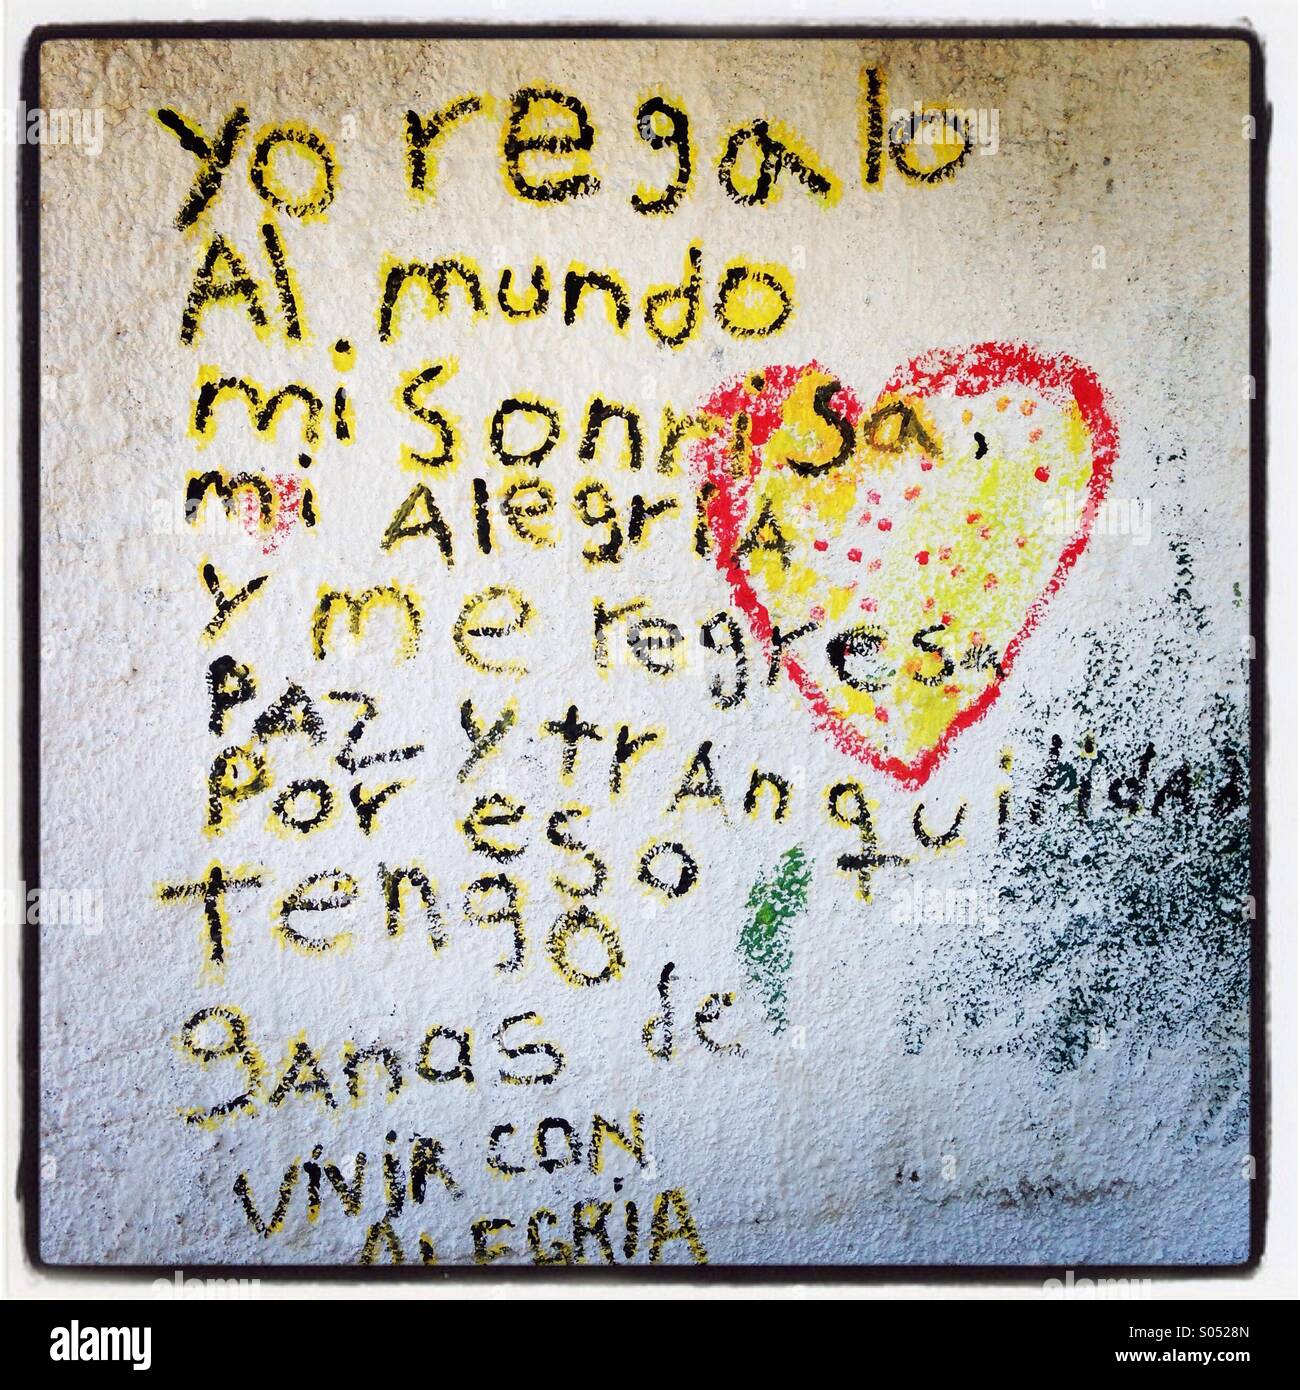 Yo regalo
Al mundo
mi sonrisa,
mi Alegria
Y me regresa
PAZ y trAnquilidad
Por eso
Tengo
gAnas de
ViVjR CON
ALEGRiA
alamy stock photo
S0528N
www.alamy.com